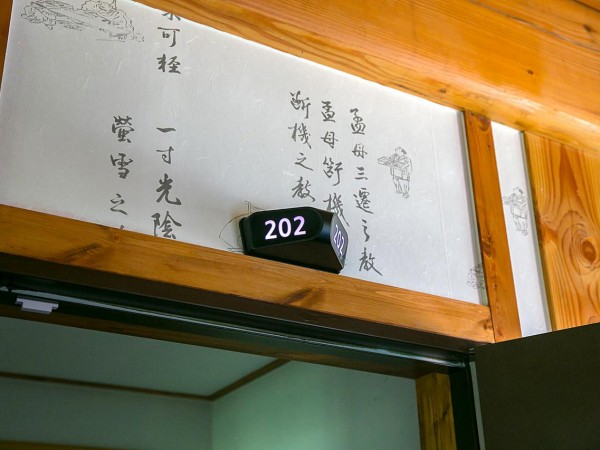 孟母三遷之教
孟母斷機
斷機之教
可輕
一寸光陰
螢雪之
202
202